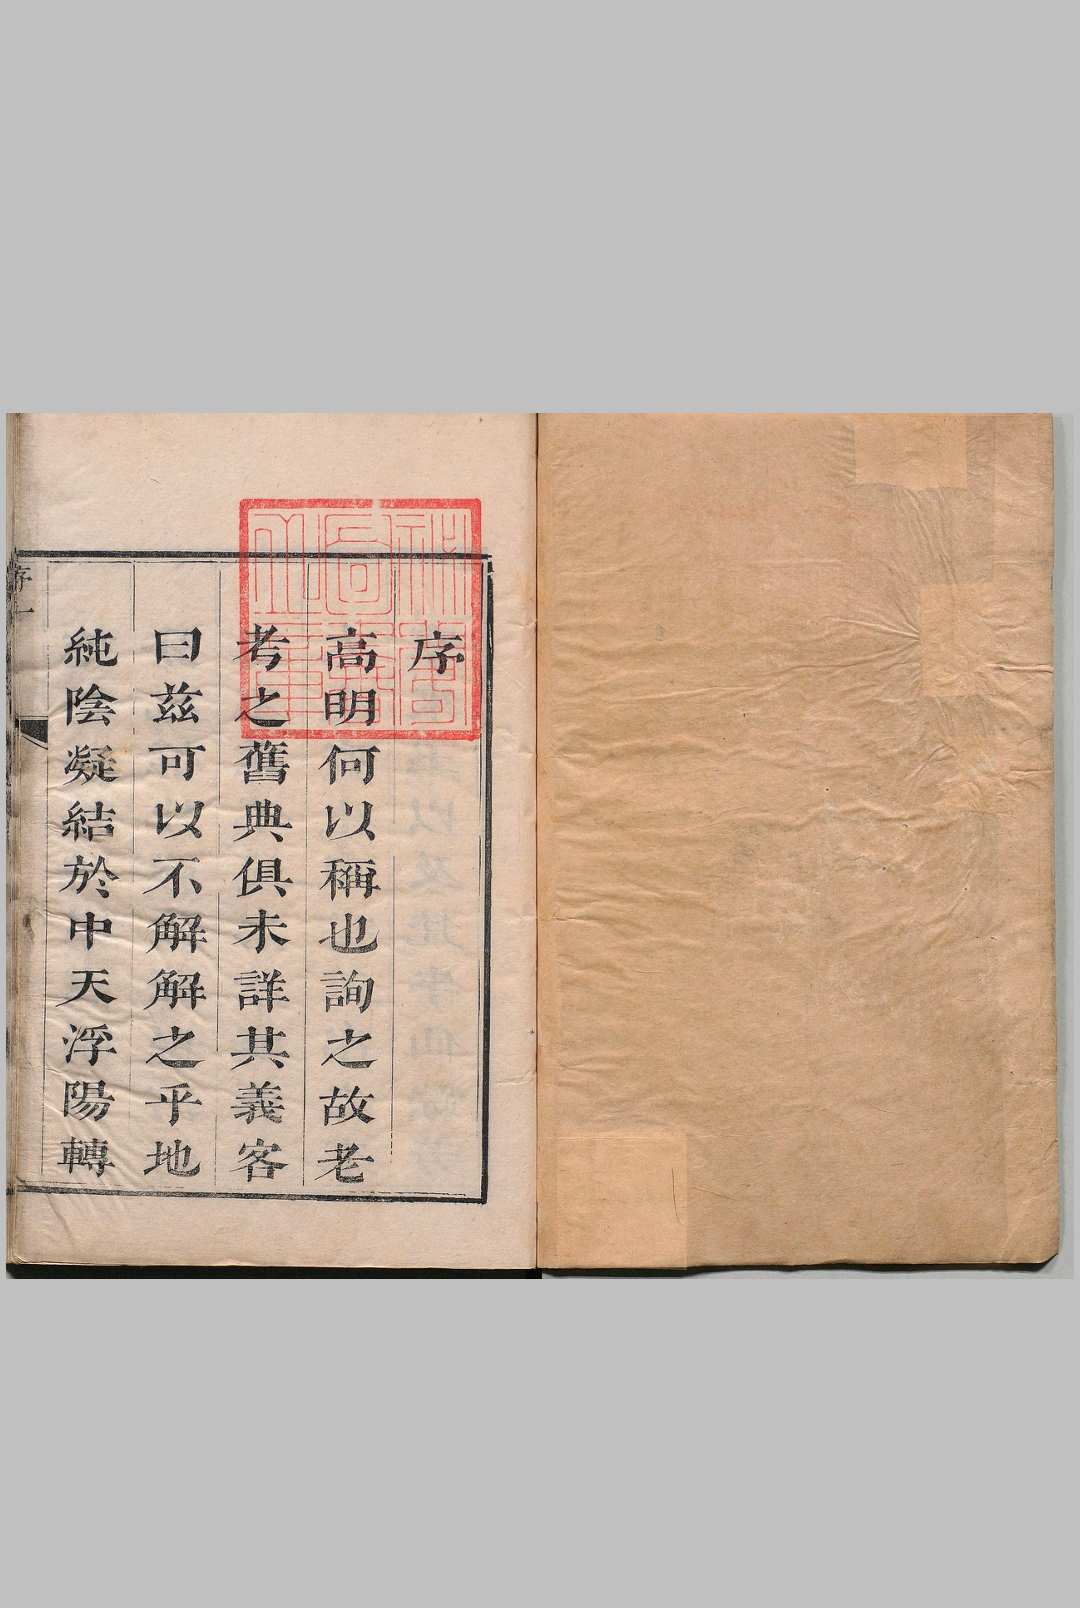 序
高明何以稱也詢之故老
考之舊典俱未詳其義客
曰茲可以不解解之乎地
純陰凝結於中天浮陽轉
序一